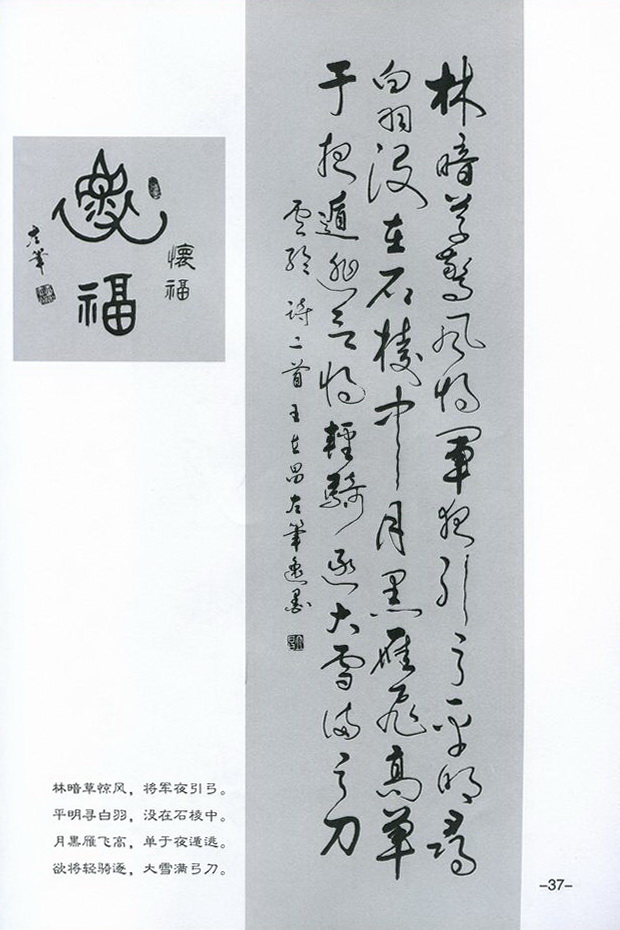 林暗草驚風將軍夜引弓平明尋
白羽沒在石棱中月黑雁飛高單
于夜遁逃欲將輕騎逐大雪滿弓刀
詩二首 王立昌左筆
福
懷福
左筆
林暗草惊风，将军夜引弓。
平明寻白羽，没在石棱中。
月黑雁飞高，单于夜遁逃。
欲将轻骑逐，大雪满弓刀。
-37-